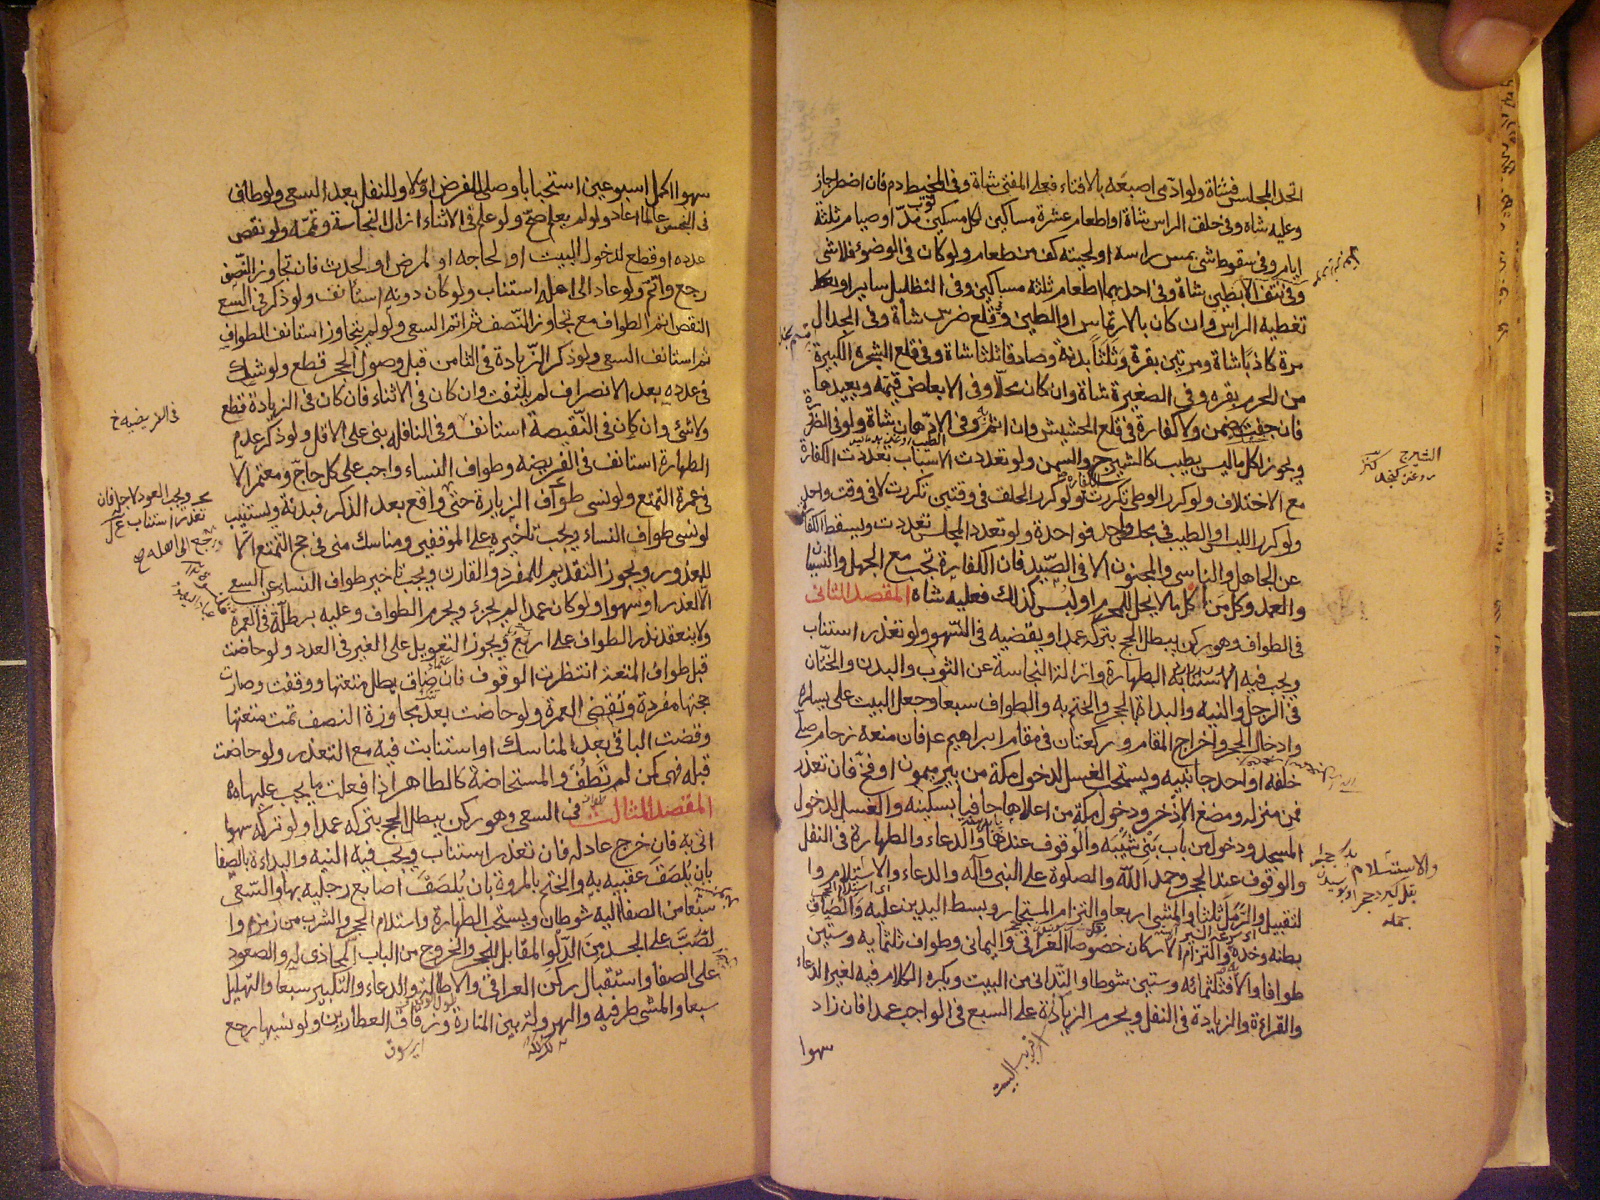 اتحد المجلس فشاة ولو ادمى اصبعه بالافتاء فعلى المفتى شاة وفى المخيط دم فان اضطر جاز
وعليه شاة وفى حلق الراس شاة او اطعام عشرة مساكين لكل مسكين مدّ او صيام ثلثة
ايام وفى سقوط شى بمس راسه او لحيته كف من طعام ولو كان فى الوضوء فلا شى
وفى نتف الابطين شاة وفى احدهما اطعام ثلثة مساكين وفى التظليل سايرا
تغطية الراس وان كان بالارتماس او الطين وقلع ضرس شاة وفى الجدال
مرة كاذبا شاة ومرتين بقرة وثلثا بدنة وصادقا ثلثا شاة وفى قلع الشجرة الكبيرة
من الحرم بقرة وفى الصغيرة شاة وان كان محلا وفى الابعاض قيمته ويعيدها
فان جفت ضمن ولا كفارة فى قلع الحشيش وان اثم وفى الادهان شاة ولو فى الضرورة
ويجوز اكل ما ليس بطيب كالشيرج والسمن ولو تعددت الاسباب تعددت الكفارة
مع الاختلاف ولو كرر الوطى تكررت ولو كرر الحلق فى وقتين تكررت لا فى وقت واحد
ولو كرر اللبس او الطيب فى مجلس واحد فواحدة ولو تعدد المجلس تعددت ويسقط الكفارة
عن الجاهل والناسى والمجنون الا فى الصيد فان الكفارة تجب مع الجهل والنسيان
والعمد وكل من اكل ما لا يحل للمحرم او لبس كذلك فعليه شاة المقصد الثانى
فى الطواف وهو ركن يبطل الحج بتركه عمدا ويقضيه فى السهو ولو تعذر استناب
ويجب فيه الطهارة وازالة النجاسة عن الثوب والبدن والختان
فى الرجل والنية والبداة بالحجر والختم به والطواف سبعا وجعل البيت على يساره
وادخال الحجر واخراج المقام وركعتان فى مقام ابراهيم ع فان منعه زحام صلى
خلفه او احد جانبيه ويستحب الغسل لدخول مكة من بير ميمون او فخ فان تعذر
فمن منزله ومضغ الاذخر ودخول مكة من اعلاها حافيا بسكينة والغسل لدخول
المسجد ودخوله من باب بنى شيبة والوقوف عندها والدعاء والطهارة فى النفل
والوقوف عند الحجر وحمد الله والصلوة على النبى وآله والدعاء والاستلام وا
لتقبيل والرمل ثلثا والمشى اربعا والتزام المستجار وبسط اليدين عليه والصاق
بطنه وخده والتزام الاركان خصوصا العراقى واليمانى وطواف ثلثمائة وستين
طوافا والا فثلثمائة وستين شوطا والتدانى من البيت ويكره الكلام فيه لغير الدعاء
والقراءة والزيادة فى النفل ويحرم الزيادة على السبع فى الواجب عمدا فان زاد
سهوا
الشيرج
روغن كنجد
والاستسلام
سهوا اكمل اسبوعين استحبابا وصلى للفرض اولا وللنفل بعد السعى ولو طاف
فى النجس عالما اعاد ولو لم يعلم صح ولو علم فى الاثناء ازال النجاسة وتممه ولو نقص
عدده او قطع لدخول البيت او لحاجة او لمرض او لحدث فان تجاوز النصف
رجع واتم ولو عاد الى اهله استناب ولو كان دونه استانف ولو ذكر فى السعى
النقص اتم الطواف مع تجاوز النصف ثم اتم السعى ولو لم يتجاوز استانف الطواف
ثم استانف السعى ولو ذكر الزيادة فى الثامن قبل وصول الحجر قطع ولو شك
فى عدده بعد الانصراف لم يلتفت وان كان فى الاثناء فان كان فى الزيادة قطع
ولا شى وان كان فى النقيصة استانف وفى النافلة بنى على الاقل ولو ذكر عدم
الطهارة استانف فى الفريضة وطواف النساء واجب على كل حاج ومعتمر الا
فى عمرة التمتع ولو نسى طواف الزيارة حتى واقع بعد الذكر فبدنة ويستنيب
لو نسى طواف النساء ويجب تاخيره على الموقفين ومناسك منى فى حج التمتع الا
للمعذور ويجوز التقديم للمفرد والقارن ويجب تاخير طواف النساء عن السعى
الا لعذر او سهوا ولو كان عمدا لم يجزء ويحرم الطواف وعليه برطلة فى العمرة
ولا ينعقد نذر الطواف على اربع ويجوز التعويل على الغير فى العدد ولو حاضت
قبل طواف المتعة انتظرت الوقوف فان ضاق بطل متعتها ووقفت وصارت
حجتها مفردة وتقضى العمرة ولو حاضت بعد مجاوزة النصف تمت متعتها
وقضت الباقى بعد المناسك او استنابت فيه مع التعذر ولو حاضت
قبله فهى كمن لم تطف والمستحاضة كالطاهر اذا فعلت ما يجب عليها
المقصد الثالث فى السعى وهو ركن يبطل الحج بتركه عمدا ولو تركه سهوا
اتى به فان خرج عاد له فان تعذر استناب ويجب فيه النية والبداءة بالصفا
بان يلصق عقبيه به والختم بالمروة بان يلصق اصابع رجليه بها والسعى
سبعا من الصفا اليه شوطان ويستحب الطهارة واستلام الحجر والشرب من زمزم وا
لصب على الجسد من الدلو المقابل للحجر والخروج من الباب المحاذى له والصعود
على الصفا واستقبال ركن العراقى والاطالة والدعاء والتكبير سبعا والتهليل
سبعا والمشى طرفيه والهرولة بين المنارة وزقاق العطارين ولو نسيها رجع
فى الفريضة خ